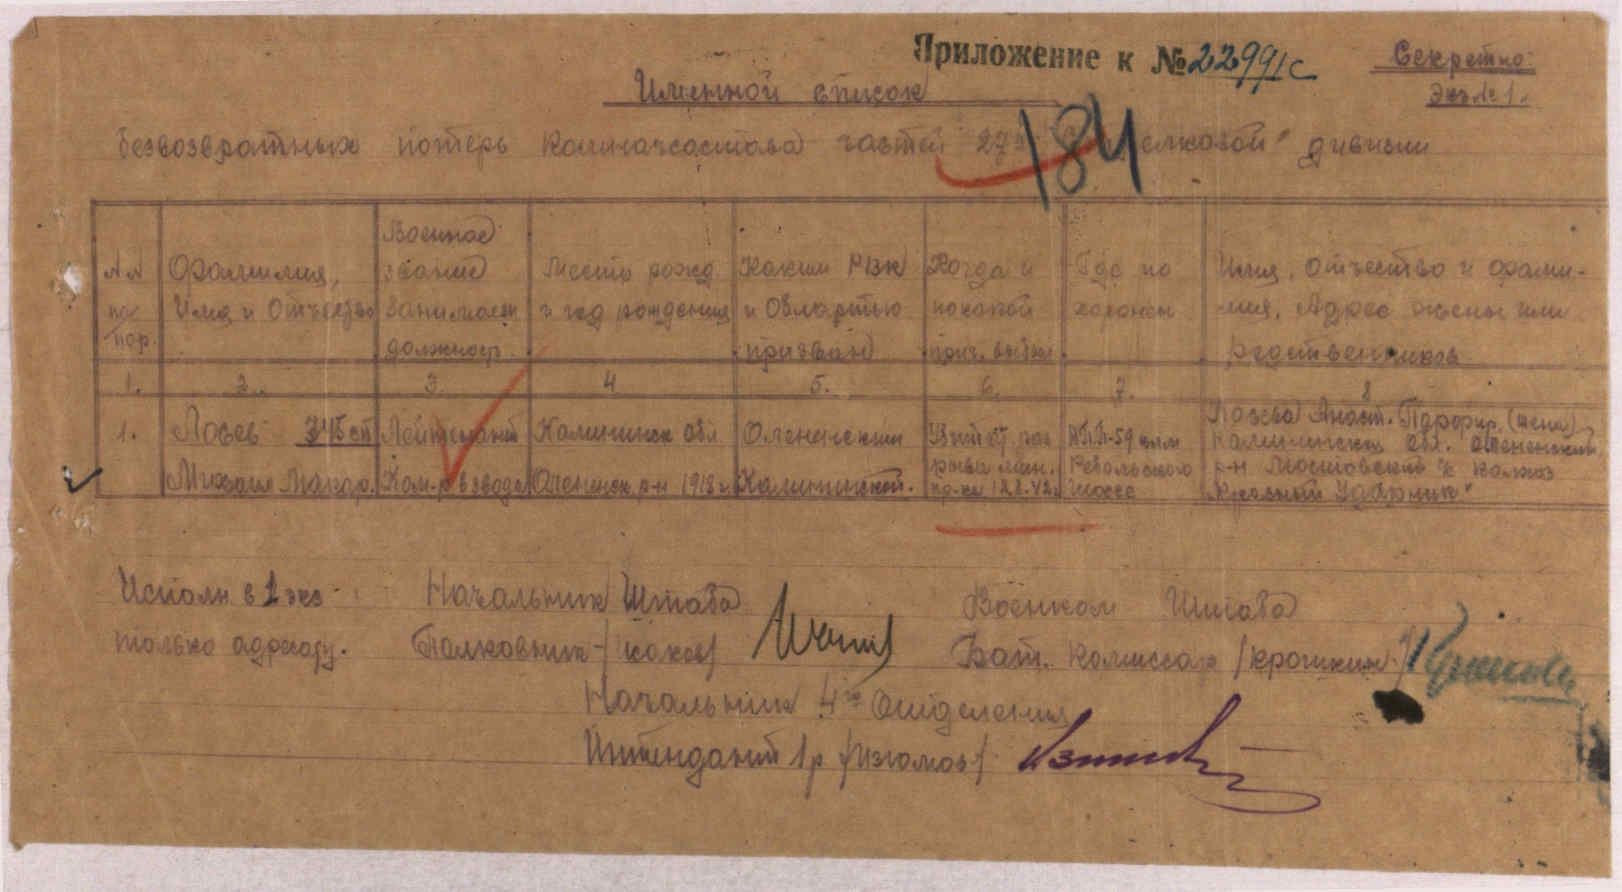 Приложение к № 22991с
Секретно
Экз № 1.
Именной список
184
безвозвратных потерь комначсостава частей 27й дивизии
№ №
по/пор.
Фамилия,
Имя и Отчество
Военное
звание
занимаем
должность.
Место рожд.
и год рождения
Каким РВК
и Областью
призван
Когда и
по какой
прич. выбыл
Где по
хоронен
Имя, отчество и фами-
лия, Адрес жены или
родственников
1. 2. 3. 4 5. 6. 7. 8
1.
Лосев
Михаил Макаро.
Лейтенант
Ком-р взвода
Калининск обл
Оленинск р-н 1918 г
Оленинским
Калининской.
Убит от раз
рыва мин.
пр-ка 12.2.42.
59 клм
Ребольского
шоссе
Лосева Анаст. Парфир. (жена)
Калининская обл. Оленинский
р-н Мостовский с/с колхоз
"Красный Ударник"
Исполн в 1 экз
только адресату.
Начальник Штаба
Полковник
Военком Штаба
Бат. Комиссар /Крошкин/
Начальник 4го Отделения
Интендант 1 р /Изюмов/